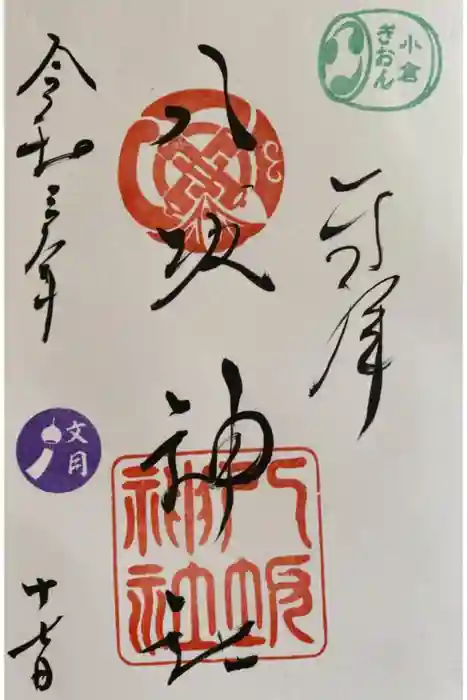 小倉
ぎおん
奉拝
八坂神社
八坂
神社
令和三年
文月
十七日